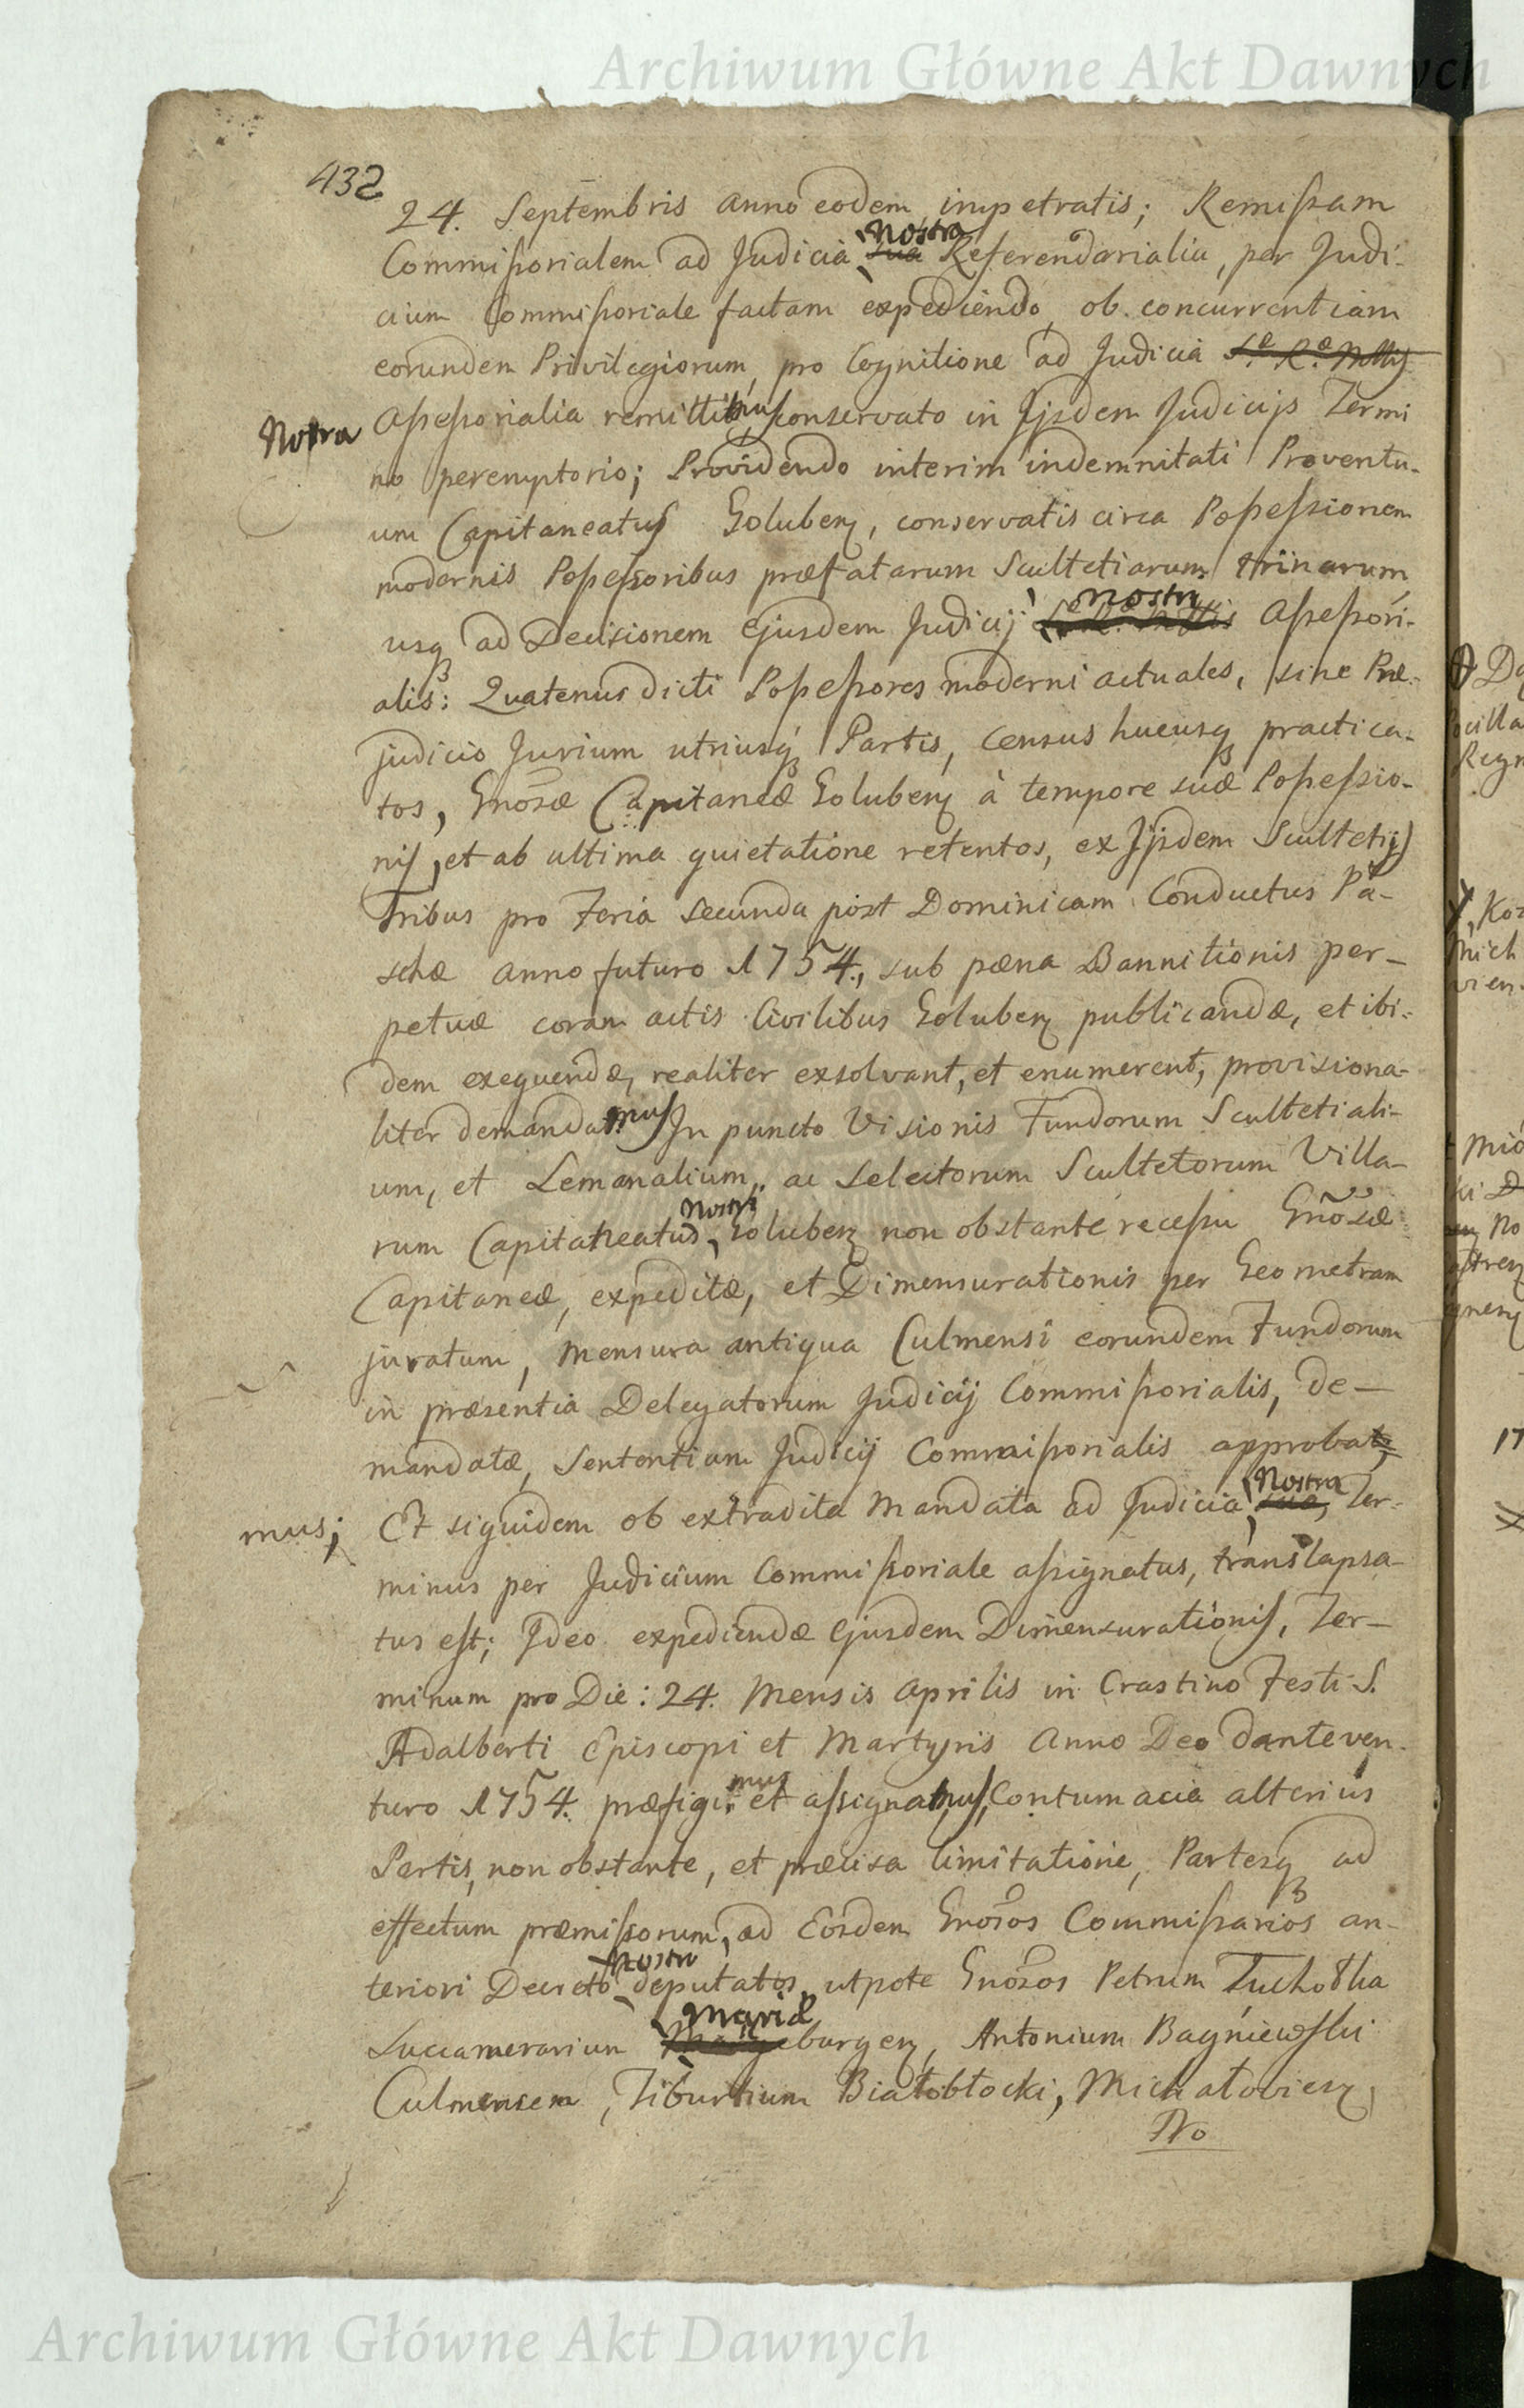 Archiwum Główne Akt Dawnych
432
24. Septembris anno eodem impetratis; Remissam
Nostra
Commissorialem ad Judicia sua Referendarialia, per Judi-
cium Commissoriale factam expediendo, ob concurrentiam
eorundem Privilegiorum, pro Cognitione ad Judicia S. R. Mttis
Nostra
Assessorialia remittimus, conservato in Ijsdem Judicijs Termi
no peremptorio; Providendo interim indemnitati Proventu-
um Capitaneatus Golubeñ, conservatis circa Possessionem
modernis Possessoribus præfatarum Scultetiarum trinarum
nostri
usq ad Decisionem Ejusdem Judicij S. R. Mttis Assessori-
alis: Quatenus dicti Possessores moderni actuales, sine Præ-
judicio Jurium utriusq Partis, Census hucusq practica-
tos, Gnosæ Capitaneæ Golubeñ à tempore suæ Possessio-
nis, et ab ultima quietatione retentos, ex Ijsdem Scultetijs
Tribus pro Feria secunda post Dominicam Conductus Pa-
schæ anno futuro 1754., sub pæna Bannitionis per-
petuæ coram actis Civilibus Golubeñ publicandæ, et ibi-
dem exequendæ, realiter exsolvant, et enumerent, provisiona-
liter demandamus In puncto Visionis Fundorum Scultetiali-
um, et Lemanalium, ac selectorum Scultetorum Villa-
Nostri
rum Capitaneatus Golubeñ non obstante recessu Gnosæ
Capitaneæ, expeditæ, et Dimensurationis per Geometram
juratum, mensura antiqua Culmensi eorundem Fundorum
in præsentia Delegatorum Judicij Commissorialis, de-
mandatæ, Sententiam Judicij Commissorialis approbat,
mus;
Nostra
Et siquidem ob extradita Mandata ad Judicia sua, Ter-
minus per Judicium Commissoriale assignatus, translapsa-
tus est; Ideo expediendæ Ejusdem Dimensurationis, Ter-
minum pro Die: 24. Mensis Aprilis in Crastino Festi S.
Adalberti Episcopi et Martyris Anno Deo dante ven-
mus
turo 1754. præfigi et assignamus, Contumacia alterius
Partis, non obstante, et præcisa limitatione, Partesq ad
effectum præmissorum, ad Eosdem Gnosos Commissarios an-
nostro
teriori Decreto deputatos, utpote Gnosos Petrum Tuchołka
Mariæ
Succamerarium burgeñ, Antonium Bagniewski
Culmensem, Tiburtium Białobłocki, Michałovieñ
No
Archiwum Główne Akt Dawnych